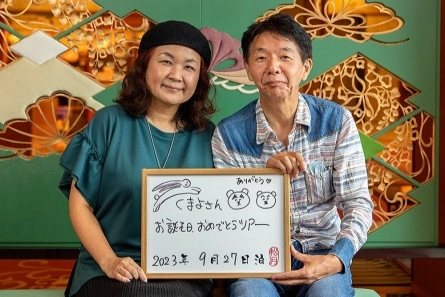 ありがとう
くまよさん
お誕生日、おめでとうツアー
2023年 9月27日泊